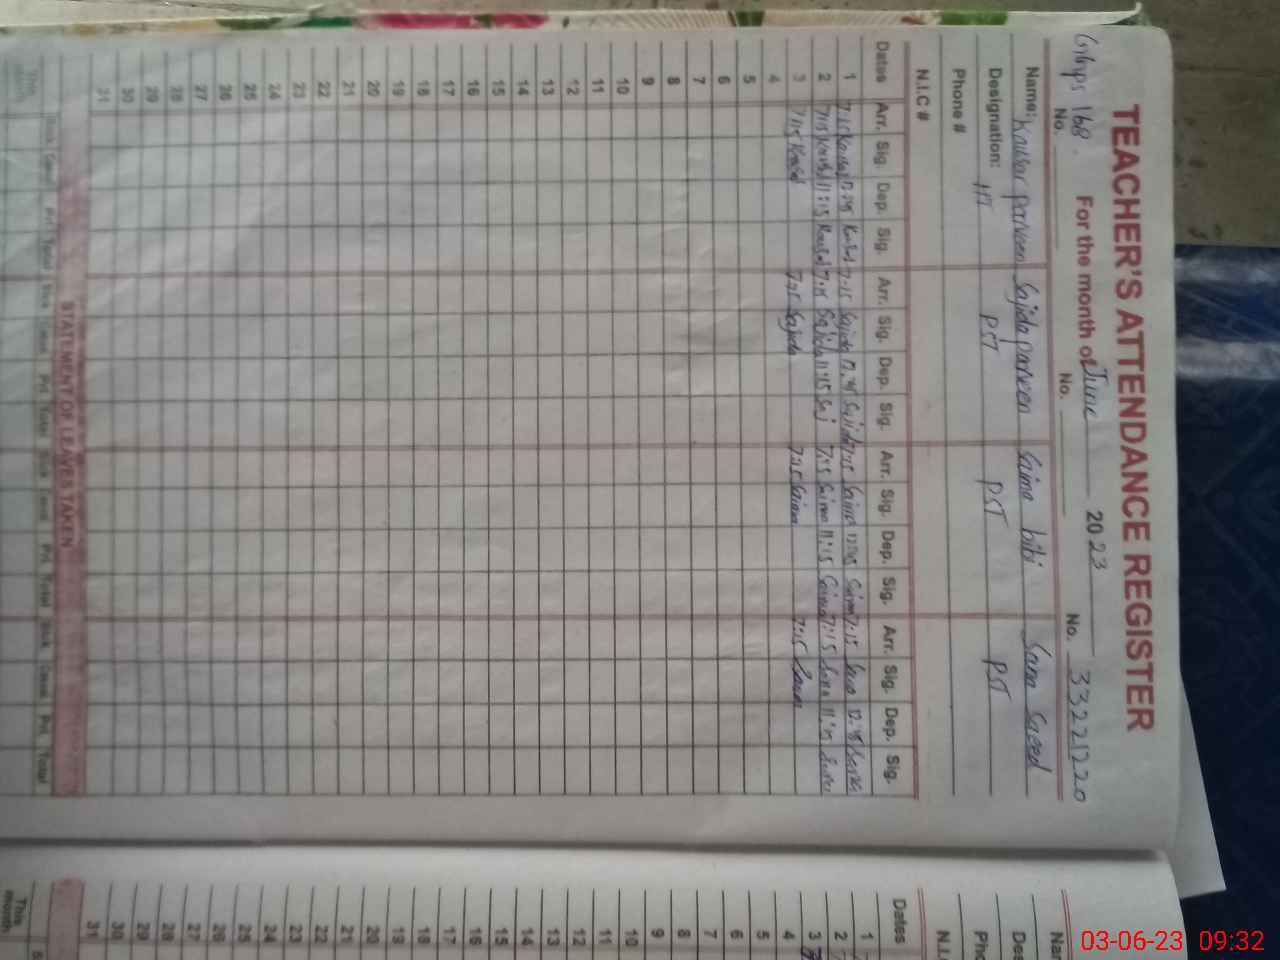 TEACHER'S ATTENDANCE REGISTER
168. For the month of June 2023 No. 33221220
No. No.
Name: Kausar parveen Sajida parveen Saima bibi Saima Saeed
Designation: HT PST PST PST
Phone #
N.I.C #
Dates Arr. Sig. Dep. Sig. Arr. Sig. Dep. Sig. Arr. Sig. Dep. Sig. Arr. Sig. Dep. Sig.
1 7:15 12:45 7:15 Sajida 12:45 Sajida 7:15 Saima 12:45 Saima 7:15 12:45
2 7:15 11:15 7:15 Sajida 11:15 Saj 7:15 Saima 11:15 Saima 7:15 11:15
3 7:15 7:15 Sajida 7:15 Saima 7:15
4
5
6
7
8
9
10
11
12
13
14
15
16
17
18
19
20
21
22
23
24
25
26
27
28
29
30
31
STATEMENT OF LEAVES TAKEN
This
Dates
1
2
3
4
5
6
7
8
9
10
11
12
13
14
15
16
17
18
19
20
21
22
23
24
25
26
27
28
29
30
31
This
month
03-06-23 09:32